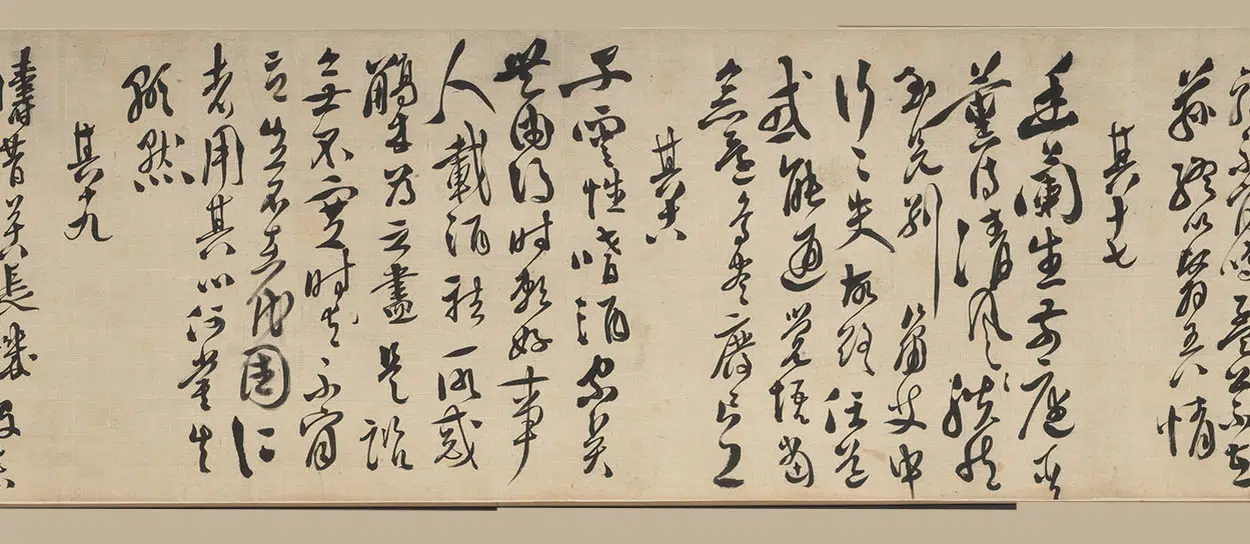 不肯鳴孟公不在
茲終以翳吾情
其十七
幽蘭生前庭含
薰待清風〻脫然
至見別蕭艾中
行〻失故路任道
或能通覺悟當
念還鳥盡廢良弓
其十八
子雲性嗜酒家貧
無由得時賴好事
人載酒祛所惑
觴來為之盡是諮
無不塞時不肯
言豈不在伐國仁
者用其心何嘗失
顯默
其十九
疇昔苦長飢投